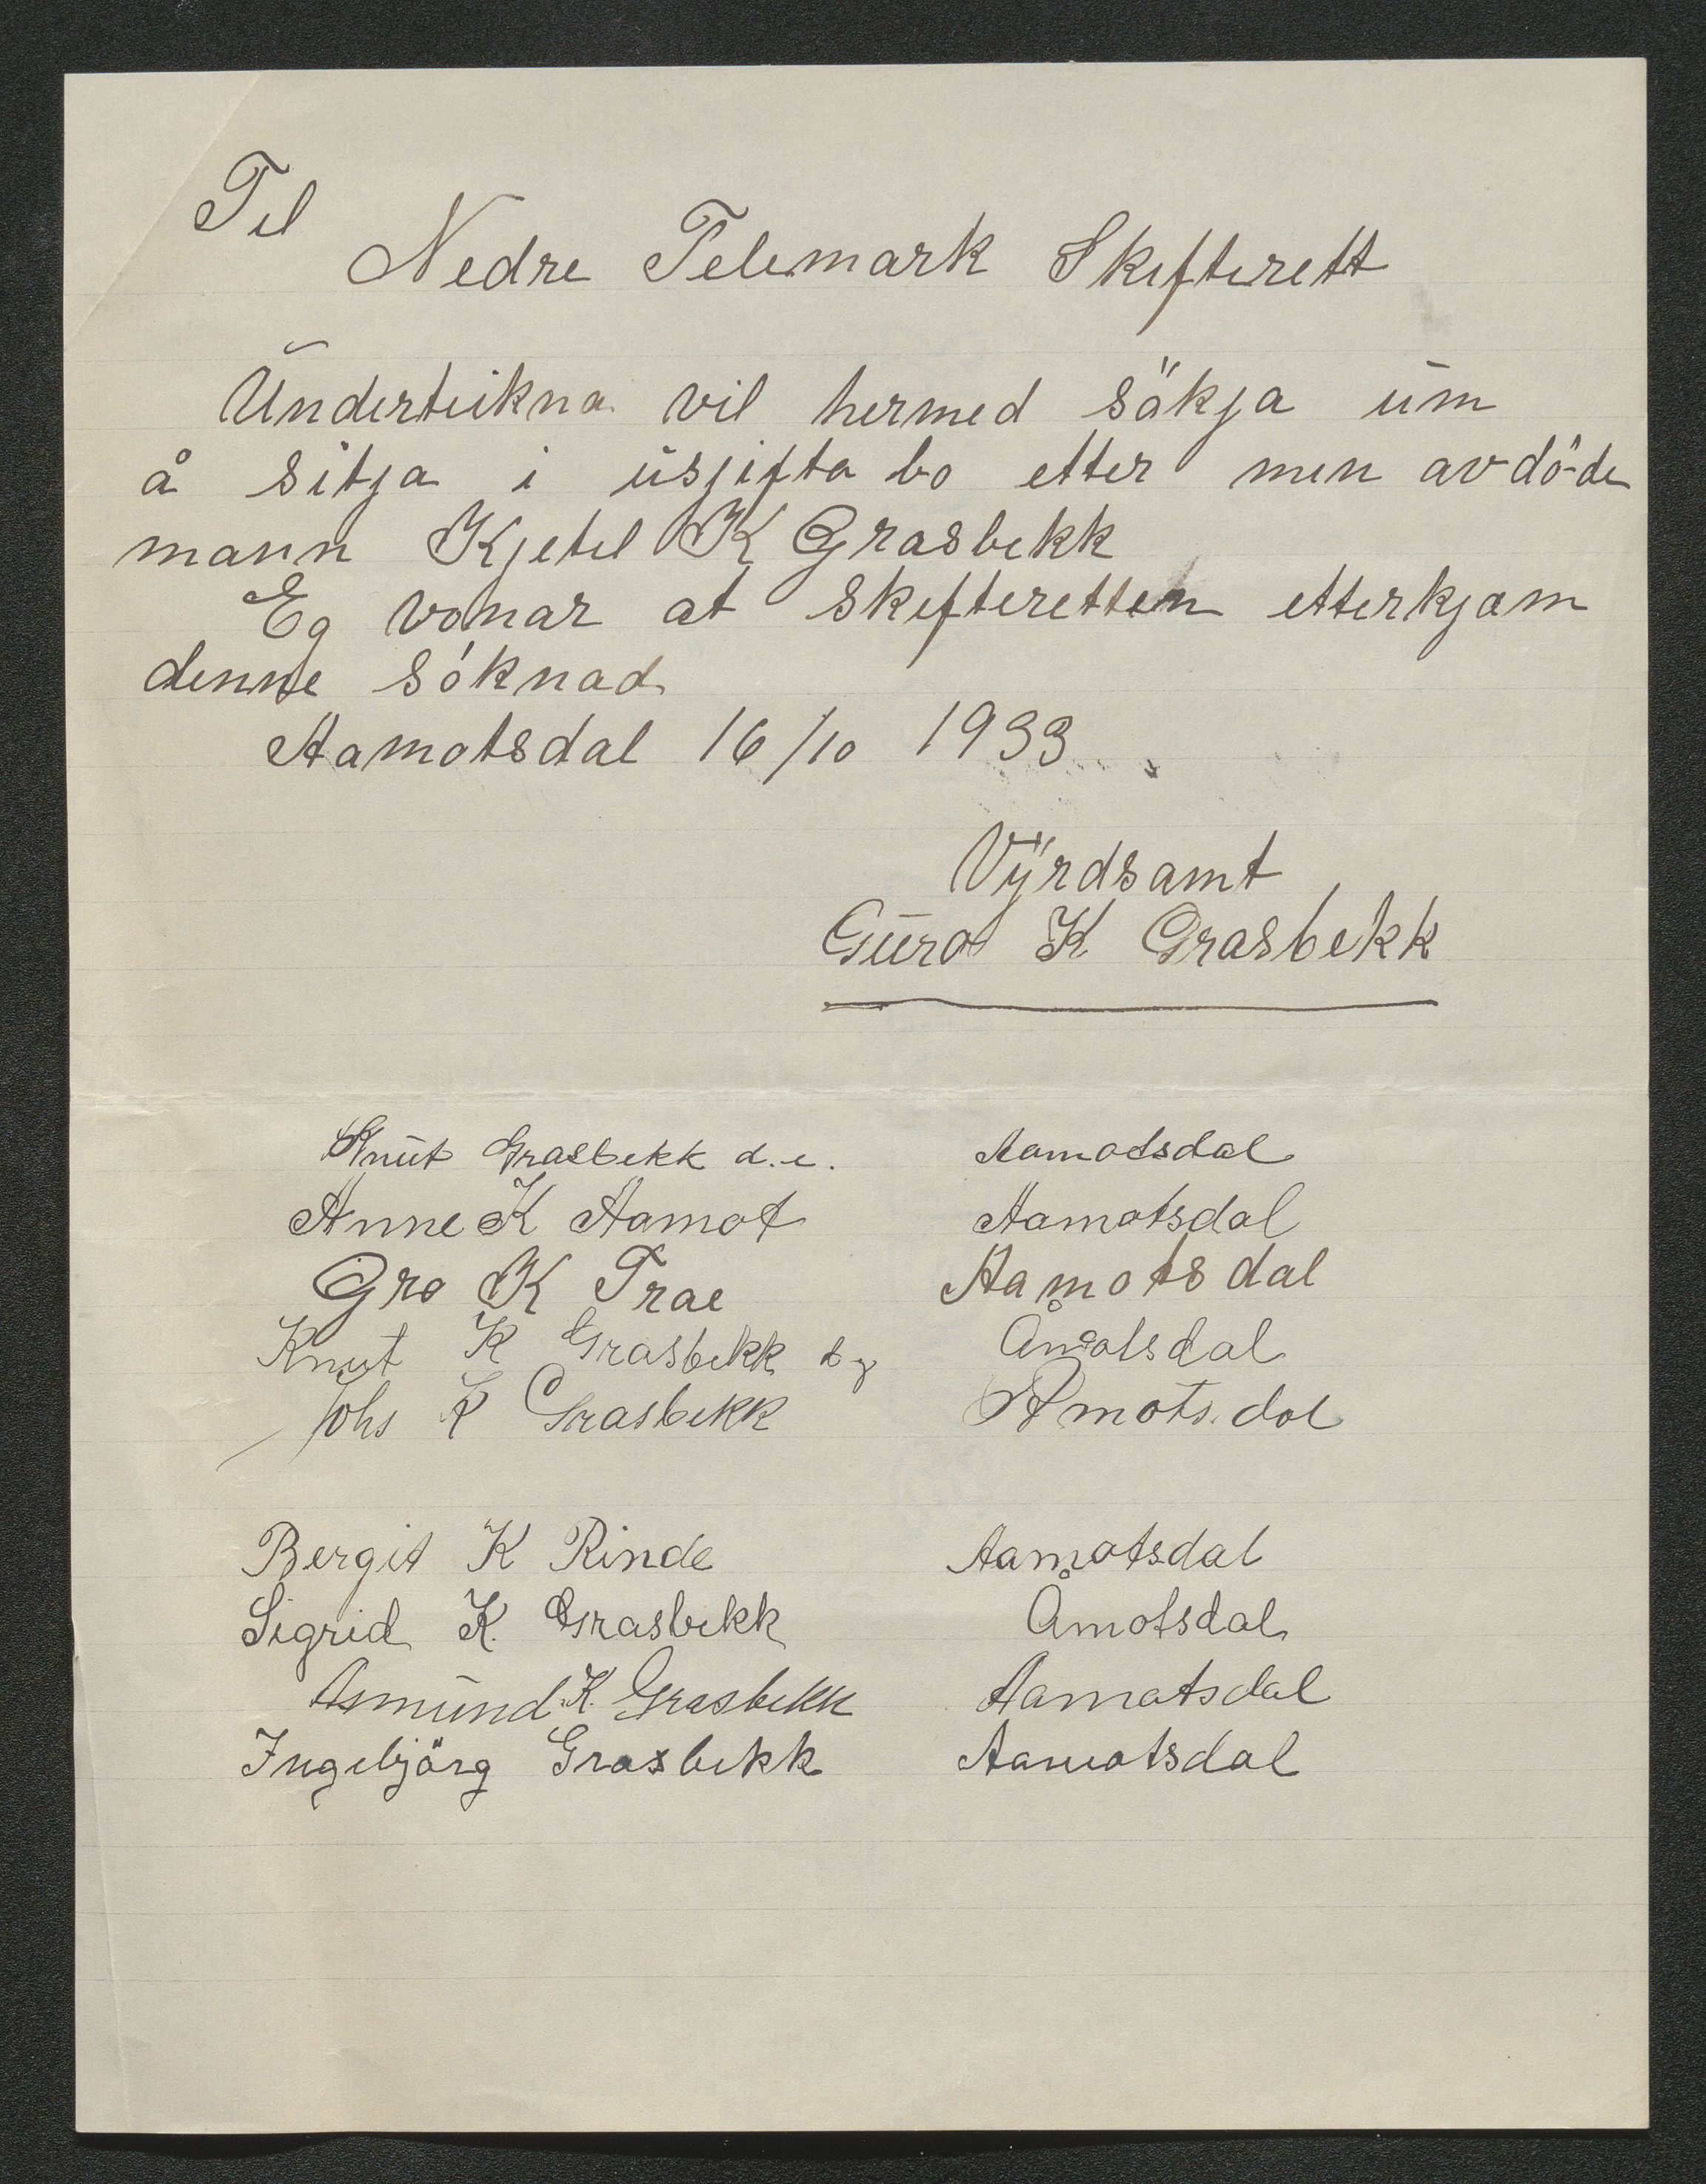 Til
Nedre Telemark Skifterett
Underteikna vil hermed sökja um
å sitja i usjifta bo etter min avdöde
mann Kjetil K Grasbekk
Eg vonar at skifteretten etterkjem
denne söknad
Aamotsdal 16/10 1933
Vyrdsamt
Guro K Grasbekk
Knut Grasbekk d.e. Aamotsdal
Anne K Aamot Aamotsdal
Gro K Trae Aamotsdal
Knut K Grasbekk d y Åmotsdal
Johs K Grasbekk Åmotsdal
Bergit K Rinde Aamotsdal
Sigrid K. Grasbekk Åmotsdal
Asmund K. Grasbekk Aamotsdal
Ingebjörg Grasbekk Aamotsdal